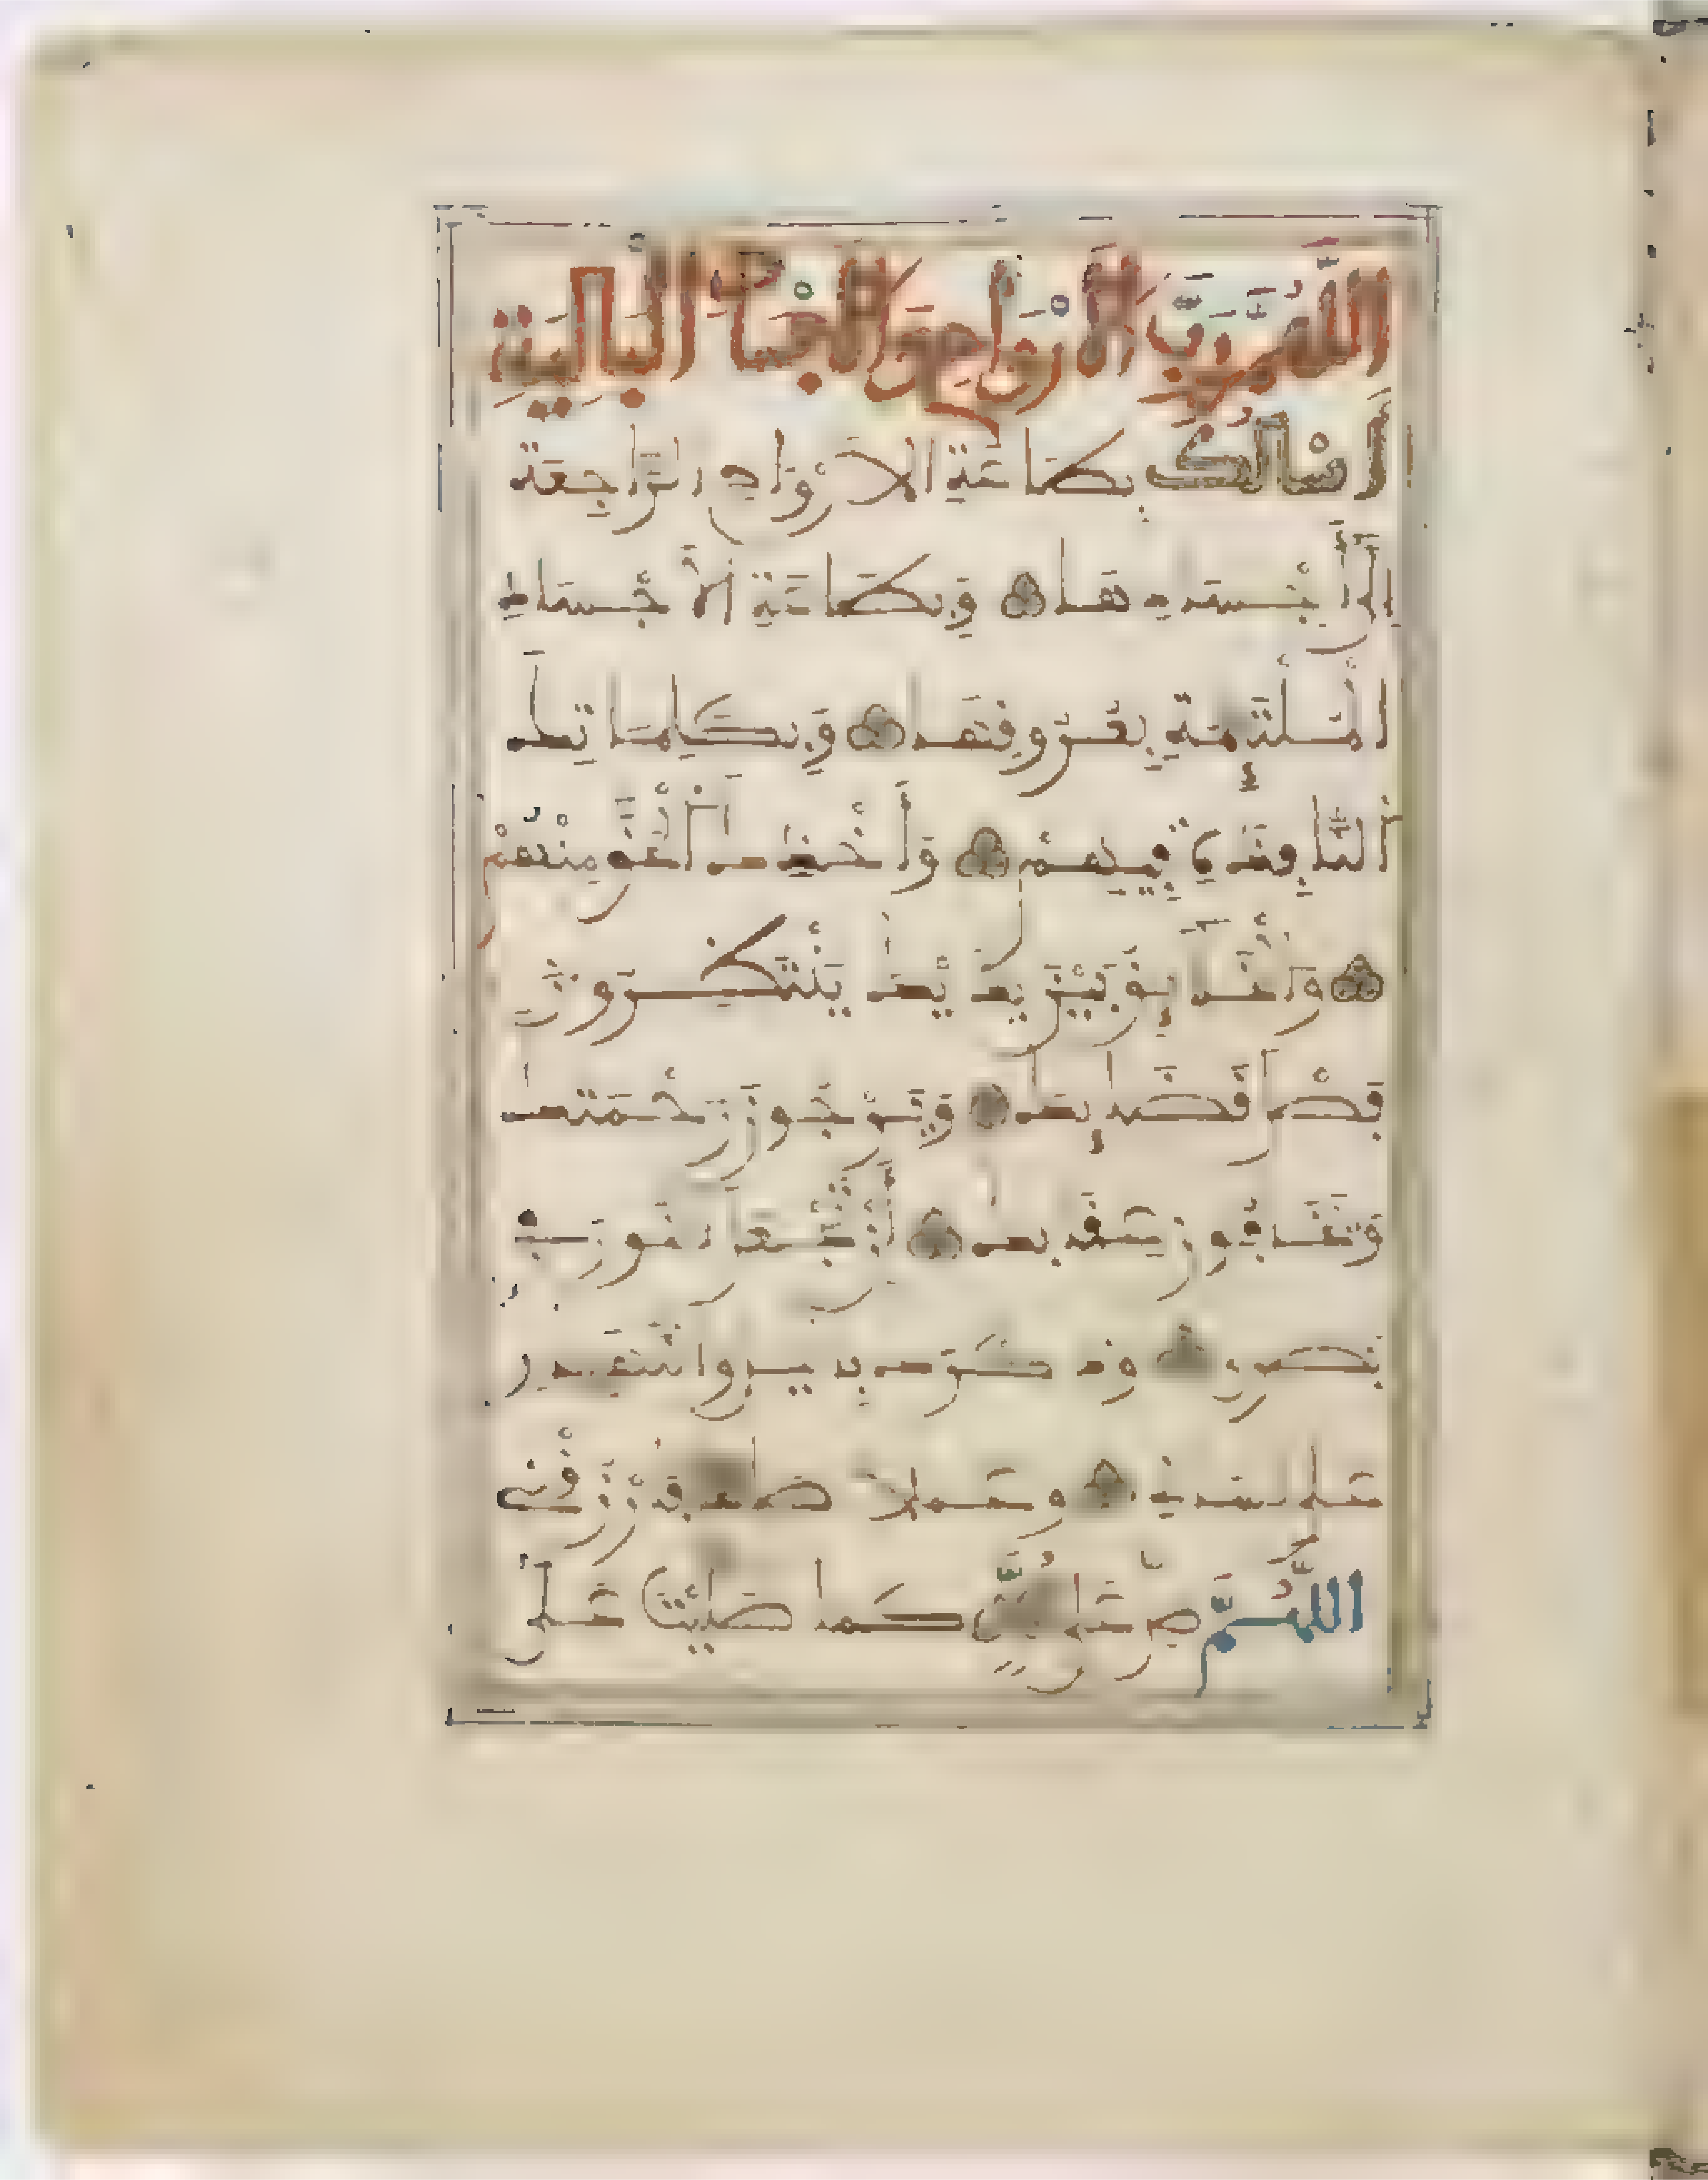 اللَّهُمَّ رَبَّ الْأَرْوَاحِ وَالْأَجْسَادِ الْبَالِيَةِ
أَسْأَلُكَ بِطَاعَةِ الْأَرْوَاحِ الرَّاجِعَةِ
إِلَى أَجْسَادِهَا وَبِطَاعَةِ الْأَجْسَادِ
الْمُلْتَئِمَةِ بِعُرُوقِهَا وَبِكَلِمَاتِكَ
النَّافِذَةِ فِيهِمْ وَأَخْذِكَ الْحَقَّ مِنْهُمْ
وَالْخَلَائِقُ بَيْنَ يَدَيْكَ يَنْتَظِرُونَ
فَصْلَ قَضَائِكَ وَيَرْجُونَ رَحْمَتَكَ
وَيَخَافُونَ عِقَابَكَ أَنْ تَجْعَلَ النُّورَ فِي
بَصَرِي وَذِكْرَكَ بِاللَّيْلِ وَالنَّهَارِ
عَلَى لِسَانِي وَعَمَلًا صَالِحًا فَارْزُقْنِي
اللَّهُمَّ صَلِّ عَلَى مُحَمَّدٍ كَمَا صَلَّيْتَ عَلَى